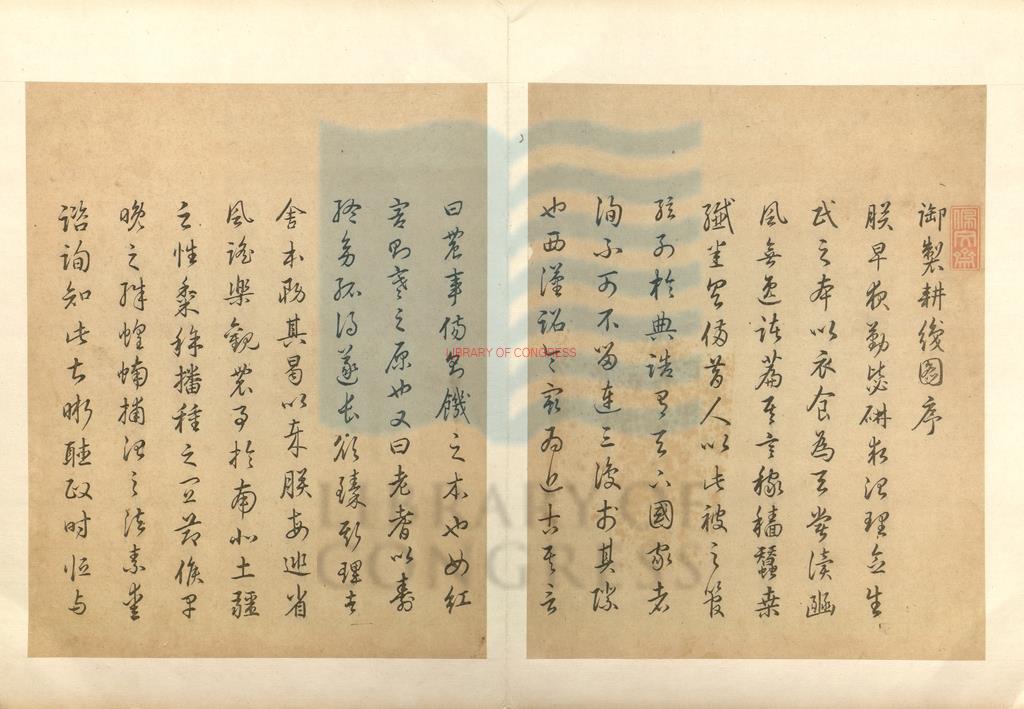 佩文齋
御製耕織圖序
朕早夜勤毖研求治理念生
民之本以衣食為天嘗讀豳
風無逸諸篇其言稼穡蠶桑
纖悉具備昔人以此被之管
弦列於典誥有天下國家者
洵不可不留連三復於其際
也西漢詔令最為近古其言
曰農事傷則饑之本也女紅
害則寒之原也又曰老耆以壽
終幼孤得遂長欲臻斯理者
舍本務其曷以哉朕每巡省
風謠樂觀農事於南北土疆
之性黍稌播種之宜節候早
晚之殊蝗蝻捕治之法素愛
諮詢知此甚晰聽政時恒与
LIBRARY OF CONGRESS
LIBRARY OF
CONGRESS